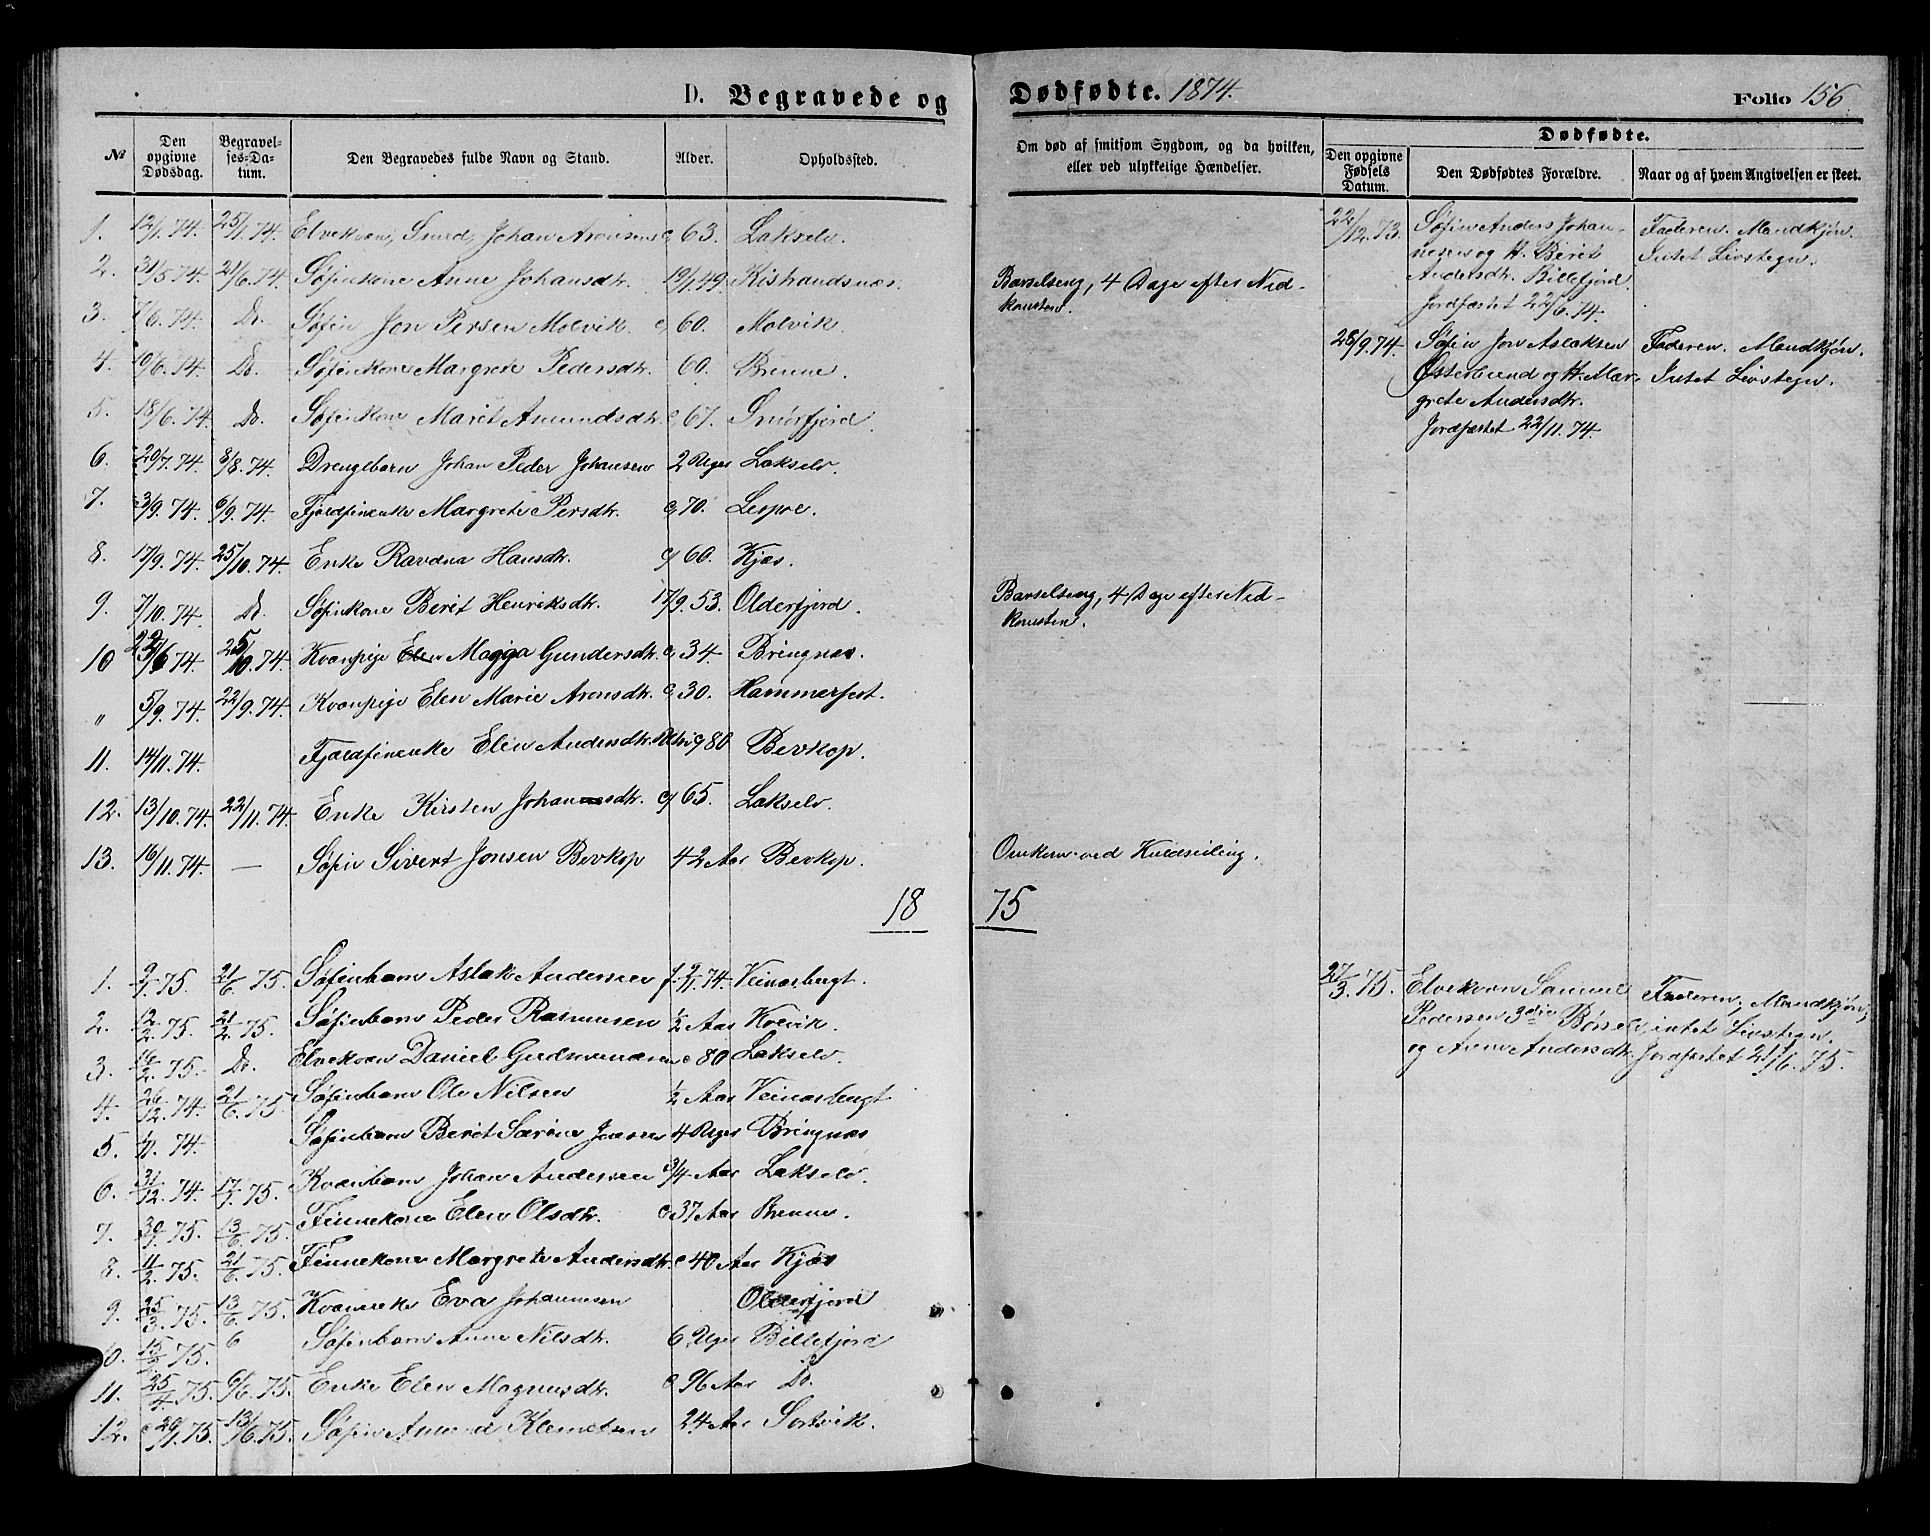 D. Begravede og Dødfødte. 1874. Folio 156.
№ Den opgivne Dødsdag. Begravelses-Datum. Den Begravedes fulde Navn og Stand. Alder. Opholdssted. Om død af smitsom Sygdom, og da hvilken, eller ved ulykkelige Hændelser.
Dødfødte.
Den opgivne Fødsels Datum. Den Dødfødtes Forældre. Naar og af hvem Angivelsen er skeet.
1. 12/1.74. 25/1.74. Elvekvæn, Smed, Johan Aronsen c 63. Lakselv.
2. 31/5.74. 21/6.74. Søfinkone Anne Johansdtr. 19/1.49. Kishandsnæs. Barselseng, 4 Dage efter Nedkomsten.
3. 7/6.74. Do. Søfin Jon Persen Molvik. c 60. Molvik.
4. 10/6.74. Do. Søfinkone Margrete Pedersdtr. 60. Brenne.
5. 18/6.74. Do. Søfinkone Marit Amundsdtr. c 67. Smørfjord.
6. 20/7.74. 8/8.74. Drengebarn Johan Peder Johansen 2 Uger Lakselv.
7. 3/9.74. 6/9.74. Fjeldfinenke Margrete Persdtr. c 70. Lespoe.
8. 17/9.74. 25/10.74. Enke Ravdna Hansdtr. c 60. Kjæs.
9. 7/10.74. Do. Søfinkone Berit Henriksdtr. 17/9.53. Olderfjord. Barselseng, 4 Dage efter Nedkomsten.
10 6.74. 25/10.74. Kvænpige Magga Gundersdtr. c 34. Bringnæs.
" 5/9.74. 22/9.74. Kvænpige Elen Marie Aronsdtr. c 30. Hammerfest.
11. 14/11.74. Fjeldfinenke Elen Andersdtr. c 80 Bevkop.
12. 13/10.74. 22/11.74. Enke Kirsten Johansdtr. c 65. Lakselv.
13. 16/11.74. — Søfin Sivert Jonsen Bevkop 42 Aar Bevkop. Omkom ved Kuldseiling.
22/12.73. Søfin Anders Johannesen og H. Berit Andersdtr. Billefjord. Jordfæstet 22/6.74. Faderen. Mandkjøn. Intet Livstegn.
28/9.74. Søfin Jon Aslaksen Østerbund og H. Margrete Andersdtr. Jordfæstet 22/11.74. Faderen. Mandkjøn. Intet Livstegn.
18 75
1. 9/1.75. 21/6.75. Søfinbarn Aslak Andersen f. 2/1.74. Veinæsbugt.
2. 12/2.75. 21/2.75. Søfinbarn Peder Rasmusen 1/2 Aar Kolvik.
3. 16/2.75. Do. Elvekvæn Daniel Gudmundsen c 80 Lakselv.
4. 26/12.74. 21/6.75. Søfinbarn Ole Nilsen 1/2 Aar Veinæsbugt
5. 11.74. Søfinbarn Berit Sarine Jensen 4 Uger Bringnæs
6. 31/12.74. 17/1.75. Kvænbarn Johan Andersen 3/4 Aar Lakselv.
7. 30/1.75. 13/6.75. Finnekone Elen Olsdtr. c 37 Aar Brenne.
8. 11/2.75. 21/6.75. Finnekone Margrete Andersdtr. c 40 Aar Kjæs
9. 25/3.75. 13/6.75. Kvænenke Eva Johannesen Olderfjord
10. 15/3.75. 6 Søfinbarn Anne Nilsdtr. 6 Uger Billefjord
11. 25/4.75. 6/6.75. Enke Elen Magnusdtr. c 96 Aar Do.
12. 29/1.75. 13/6.75. Søfin Amund Klemetsen 24 Aar Sortvik.
27/3.75. Elvekvæn Samuel Pedersen gdkr. Børselv og Anne Andersdtr. Faderen, Mandkjøn, intet Livstegn. Jordfæstet 21/6.75.